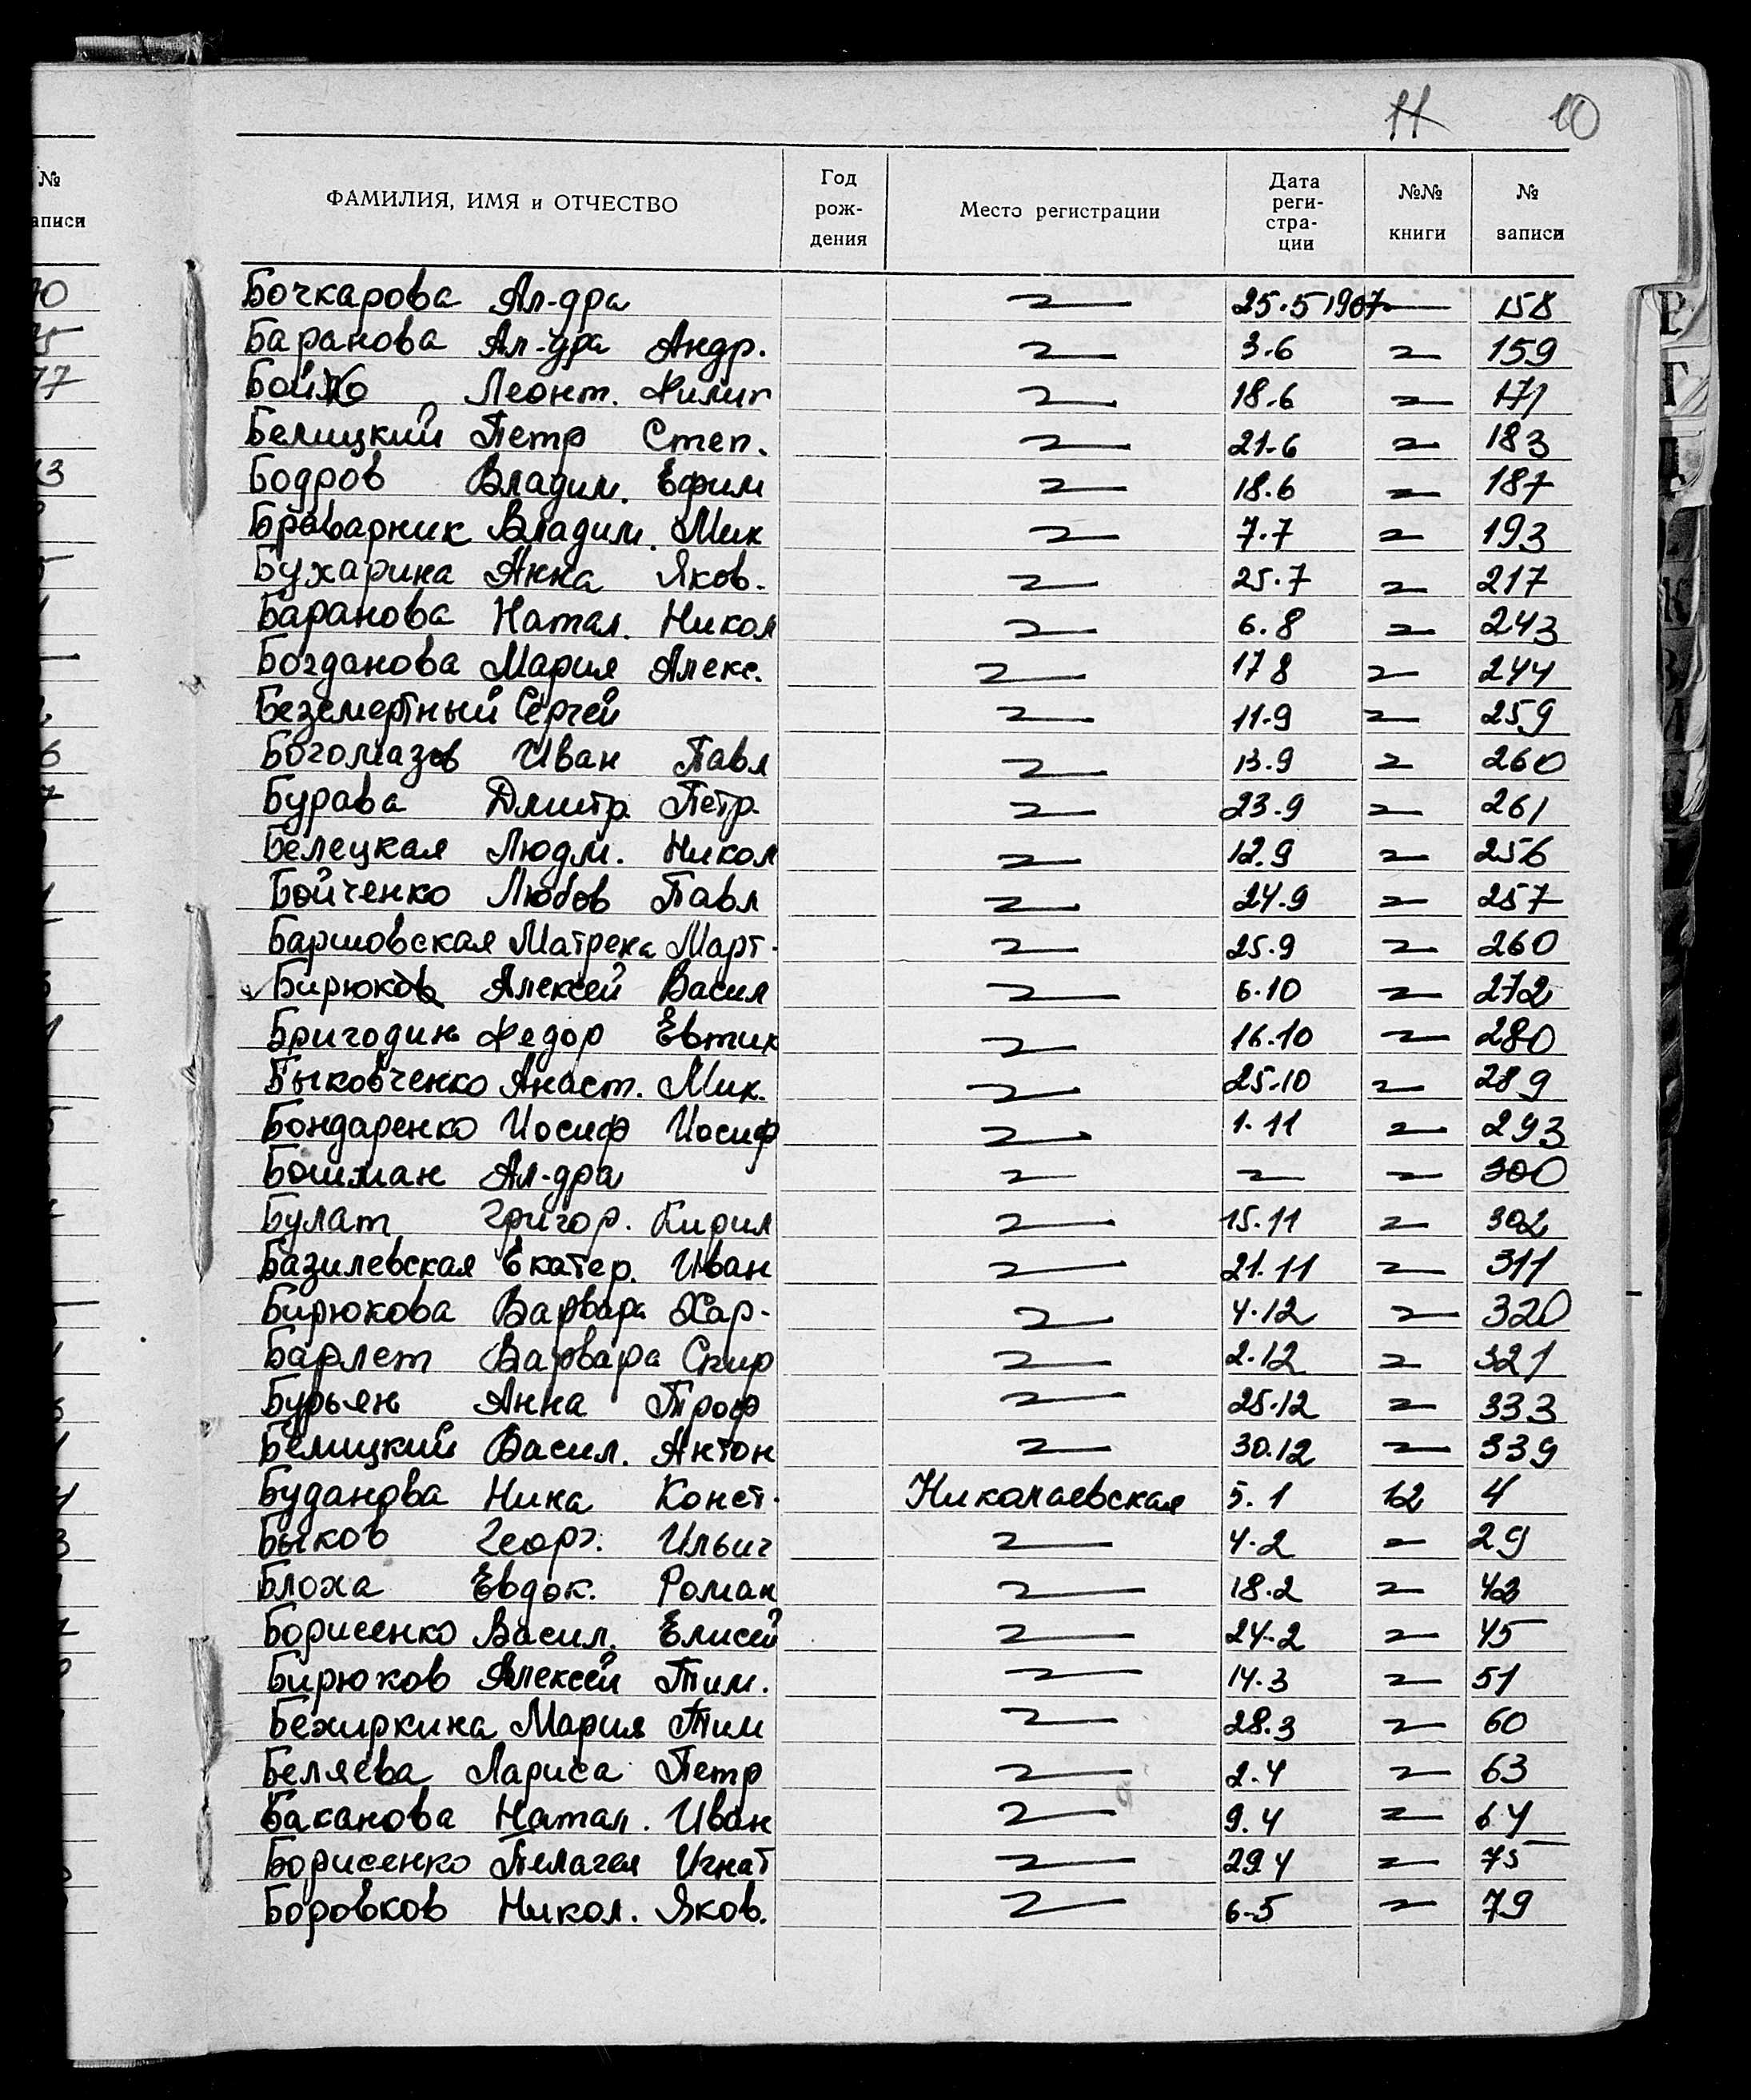 11 10
№ записи
ФАМИЛИЯ, ИМЯ и ОТЧЕСТВО
Год рож- дения
Место регистрации
Дата реги- стра- ции
№№ книги
№ записи
Бочкарова Ал-дра 〃 25.5 1907 〃 158
Баранова Ал-дра Андр. 〃 3.6 〃 159
Бойко Леонт. Филип 〃 18.6 〃 171
Белицкий Петр Степ. 〃 21.6 〃 183
Бодров Владим. Ефим 〃 18.6 〃 187
Броварник Владим. Мик 〃 7.7 〃 193
Бухарина Анна Яков. 〃 25.7 〃 217
Баранова Натал. Никол 〃 6.8 〃 243
Богданова Мария Алекс. 〃 17 8 〃 244
Безсмертный Сергей 〃 11.9 〃 259
Богомазов Иван Павл 〃 13.9 〃 260
Бурава Дмитр. Петр. 〃 23.9 〃 261
Белецкая Людм. Никол 〃 12.9 〃 256
Бойченко Любов Павл 〃 24.9 〃 257
Баршовская Матрена Март. 〃 25.9 〃 260
Бирюков Алексей Васил 〃 6.10 〃 272
Бригодин Федор Евтих 〃 16.10 〃 280
Быковченко Анаст. Мих. 〃 25.10 〃 289
Бондаренко Иосиф Иосиф 〃 1.11 〃 293
Бошман Ал-дра 〃 〃 〃 300
Булат Григор. Кирил 〃 15.11 〃 302
Базилевская Екатер. Иван 〃 21.11 〃 311
Бирюкова Варвара Хар. 〃 4.12 〃 320
Барлет Варвара Спир 〃 2.12 〃 321
Бурьян Анна Троф 〃 25.12 〃 333
Белицкий Васил. Антон 〃 30.12 〃 339
Буданова Нина Конст. Николаевская 5.1 12 4
Быков Георг. Ильич 〃 4.2 〃 29
Блоха Евдок. Роман 〃 18.2 〃 42
Борисенко Васил. Елисей 〃 24.2 〃 45
Бирюков Алексей Тим. 〃 14.3 〃 51
Бехиркина Мария Тим 〃 28.3 〃 60
Беляева Лариса Петр 〃 2.4 〃 63
Баканова Натал. Иван 〃 9.4 〃 64
Борисенко Пелагея Игнат 〃 29 4 〃 75
Боровков Никол. Яков. 〃 6-5 〃 79